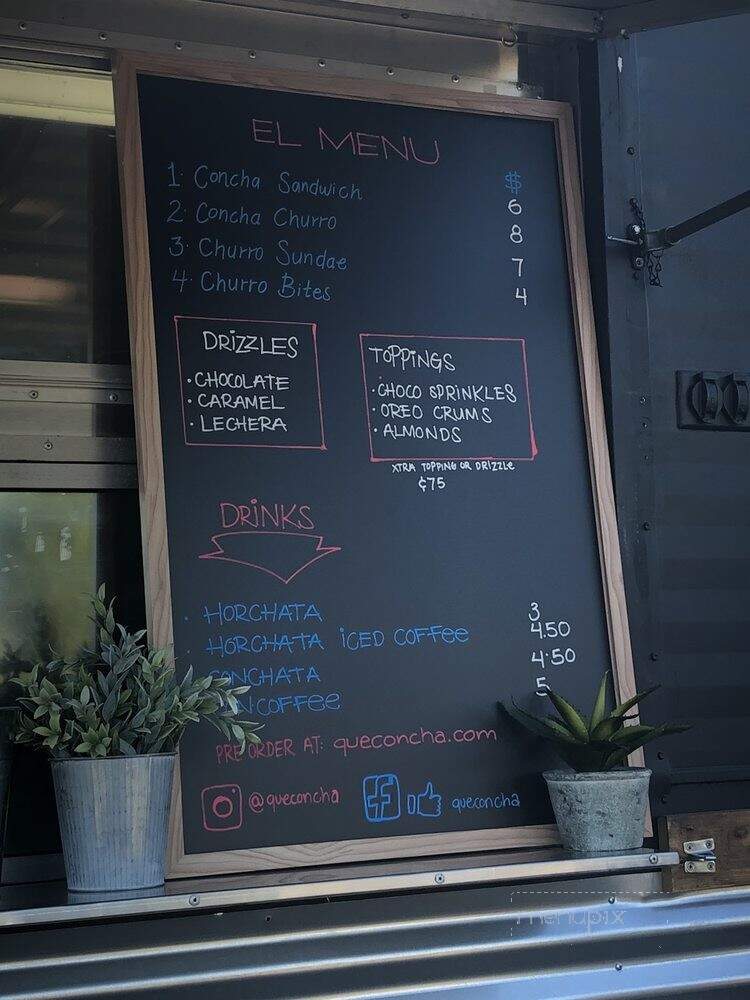 EL MENU
$
1. Concha Sandwich 6
2. Concha Churro 8
3. Churro Sundae 7
4. Churro Bites 4
DRIZZLES
• CHOCOLATE
• CARAMEL
• LECHERA
TOPPINGS
• CHOCO SPRINKLES
• OREO CRUMS
• ALMONDS
XTRA TOPPING OR DRIZZLE
¢75
DRINKS
• HORCHATA 3
• HORCHATA ICED COFFEE 4.50
CONCHATA 4.50
COFFEE 5
PRE ORDER AT: queconcha.com
@queconcha
f queconcha
menupix